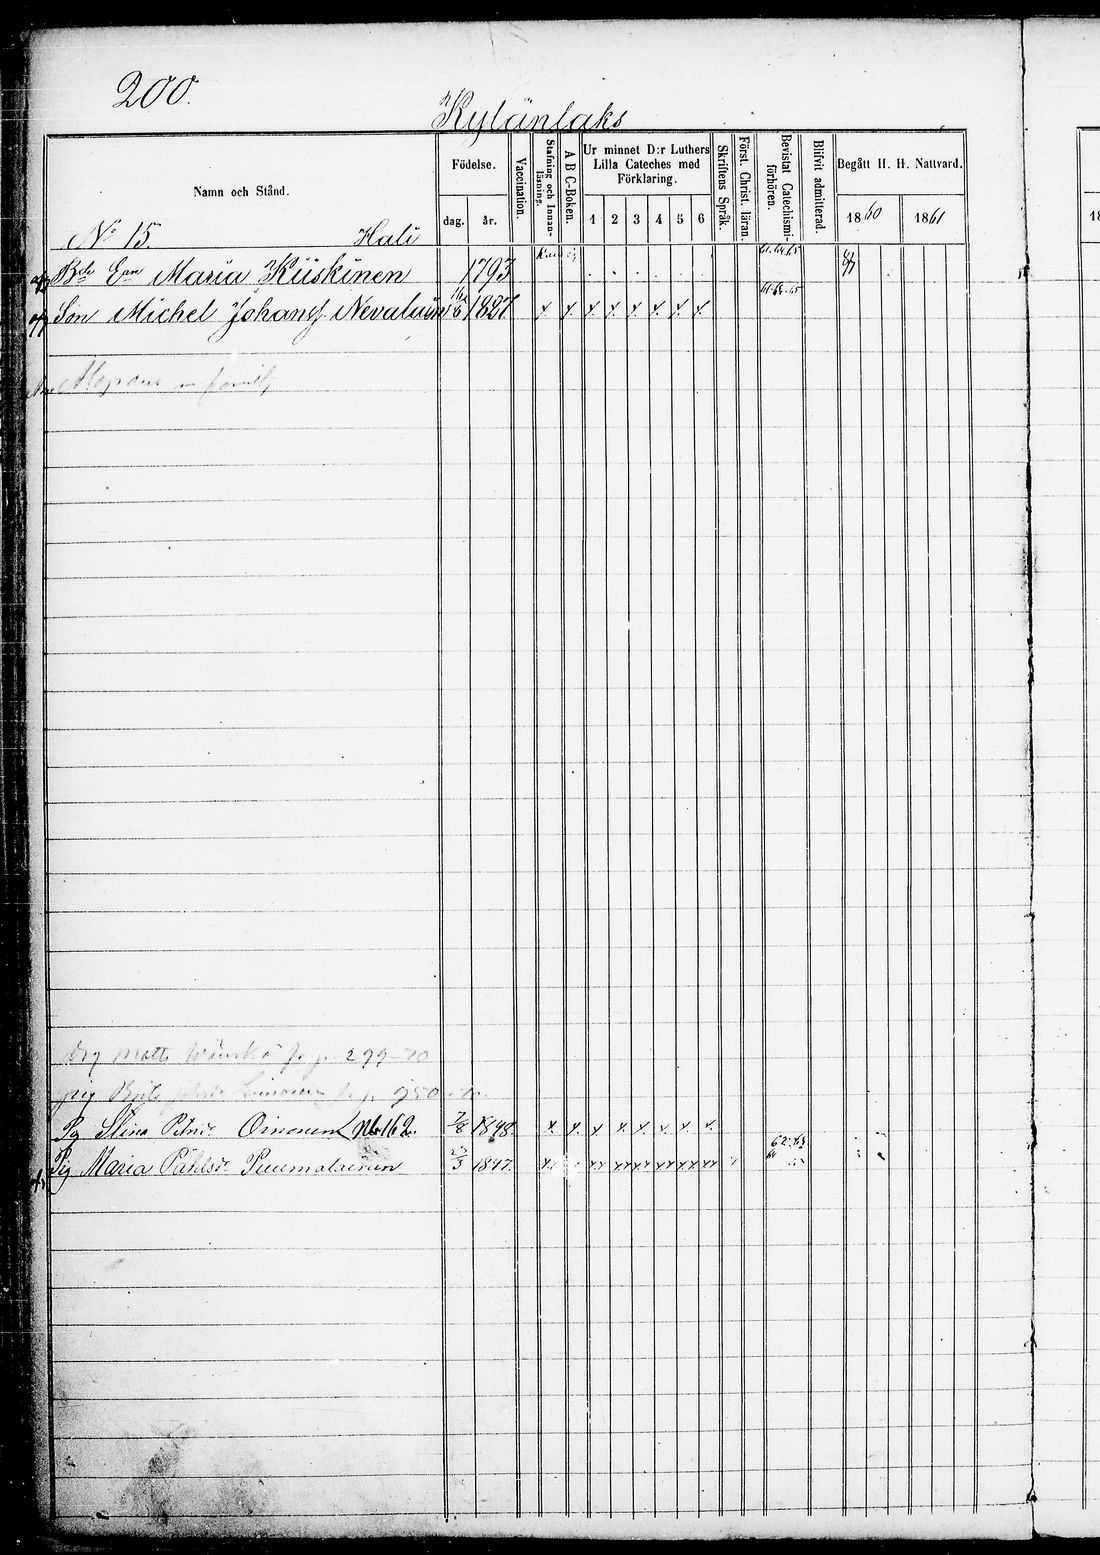 200.
Kylänlaks
Namn och Stånd.
Födelse.
dag.
år.
Vaccination.
Stafning och Innan-läsning.
A B C-Boken.
Ur minnet D:r Luthers
Lilla Cateches med
Förklaring.
1 2 3 4 5 6
Skriftens Språk.
Först. Christ. läran.
Bevistat Catechismi-förhören.
Blifvit admitterad.
Begått H. H. Nattvard.
1860 1861
No 15 Hali
Maria Kiiskinen 1793
Son Michel Johansf. Nevalainen 1827 x x x x x x x x
p. 299-70
Pig Stina Petrisd. Oinonen No 162. 7/8 1848 x x x x x x x x
Pig Maria Påhlsd. Puumalainen 1847. xx xx xx xx xx xx xx 62.63